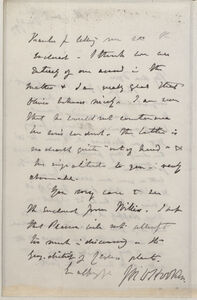 Thanks for letting me see the
enclosed. I think we are
entirely of one accord in the
matter & I am really glad that
Oliver behaves nicely. I am sure
that he would not countenance
his sons conduct. The latter is
no doubt quite "out of hand" &
his ingratitude to you is really
abominable.
You may care to see
the enclosed from
that Pearson will not attempt
too much in discussing the
Geog. distrib. of plants.